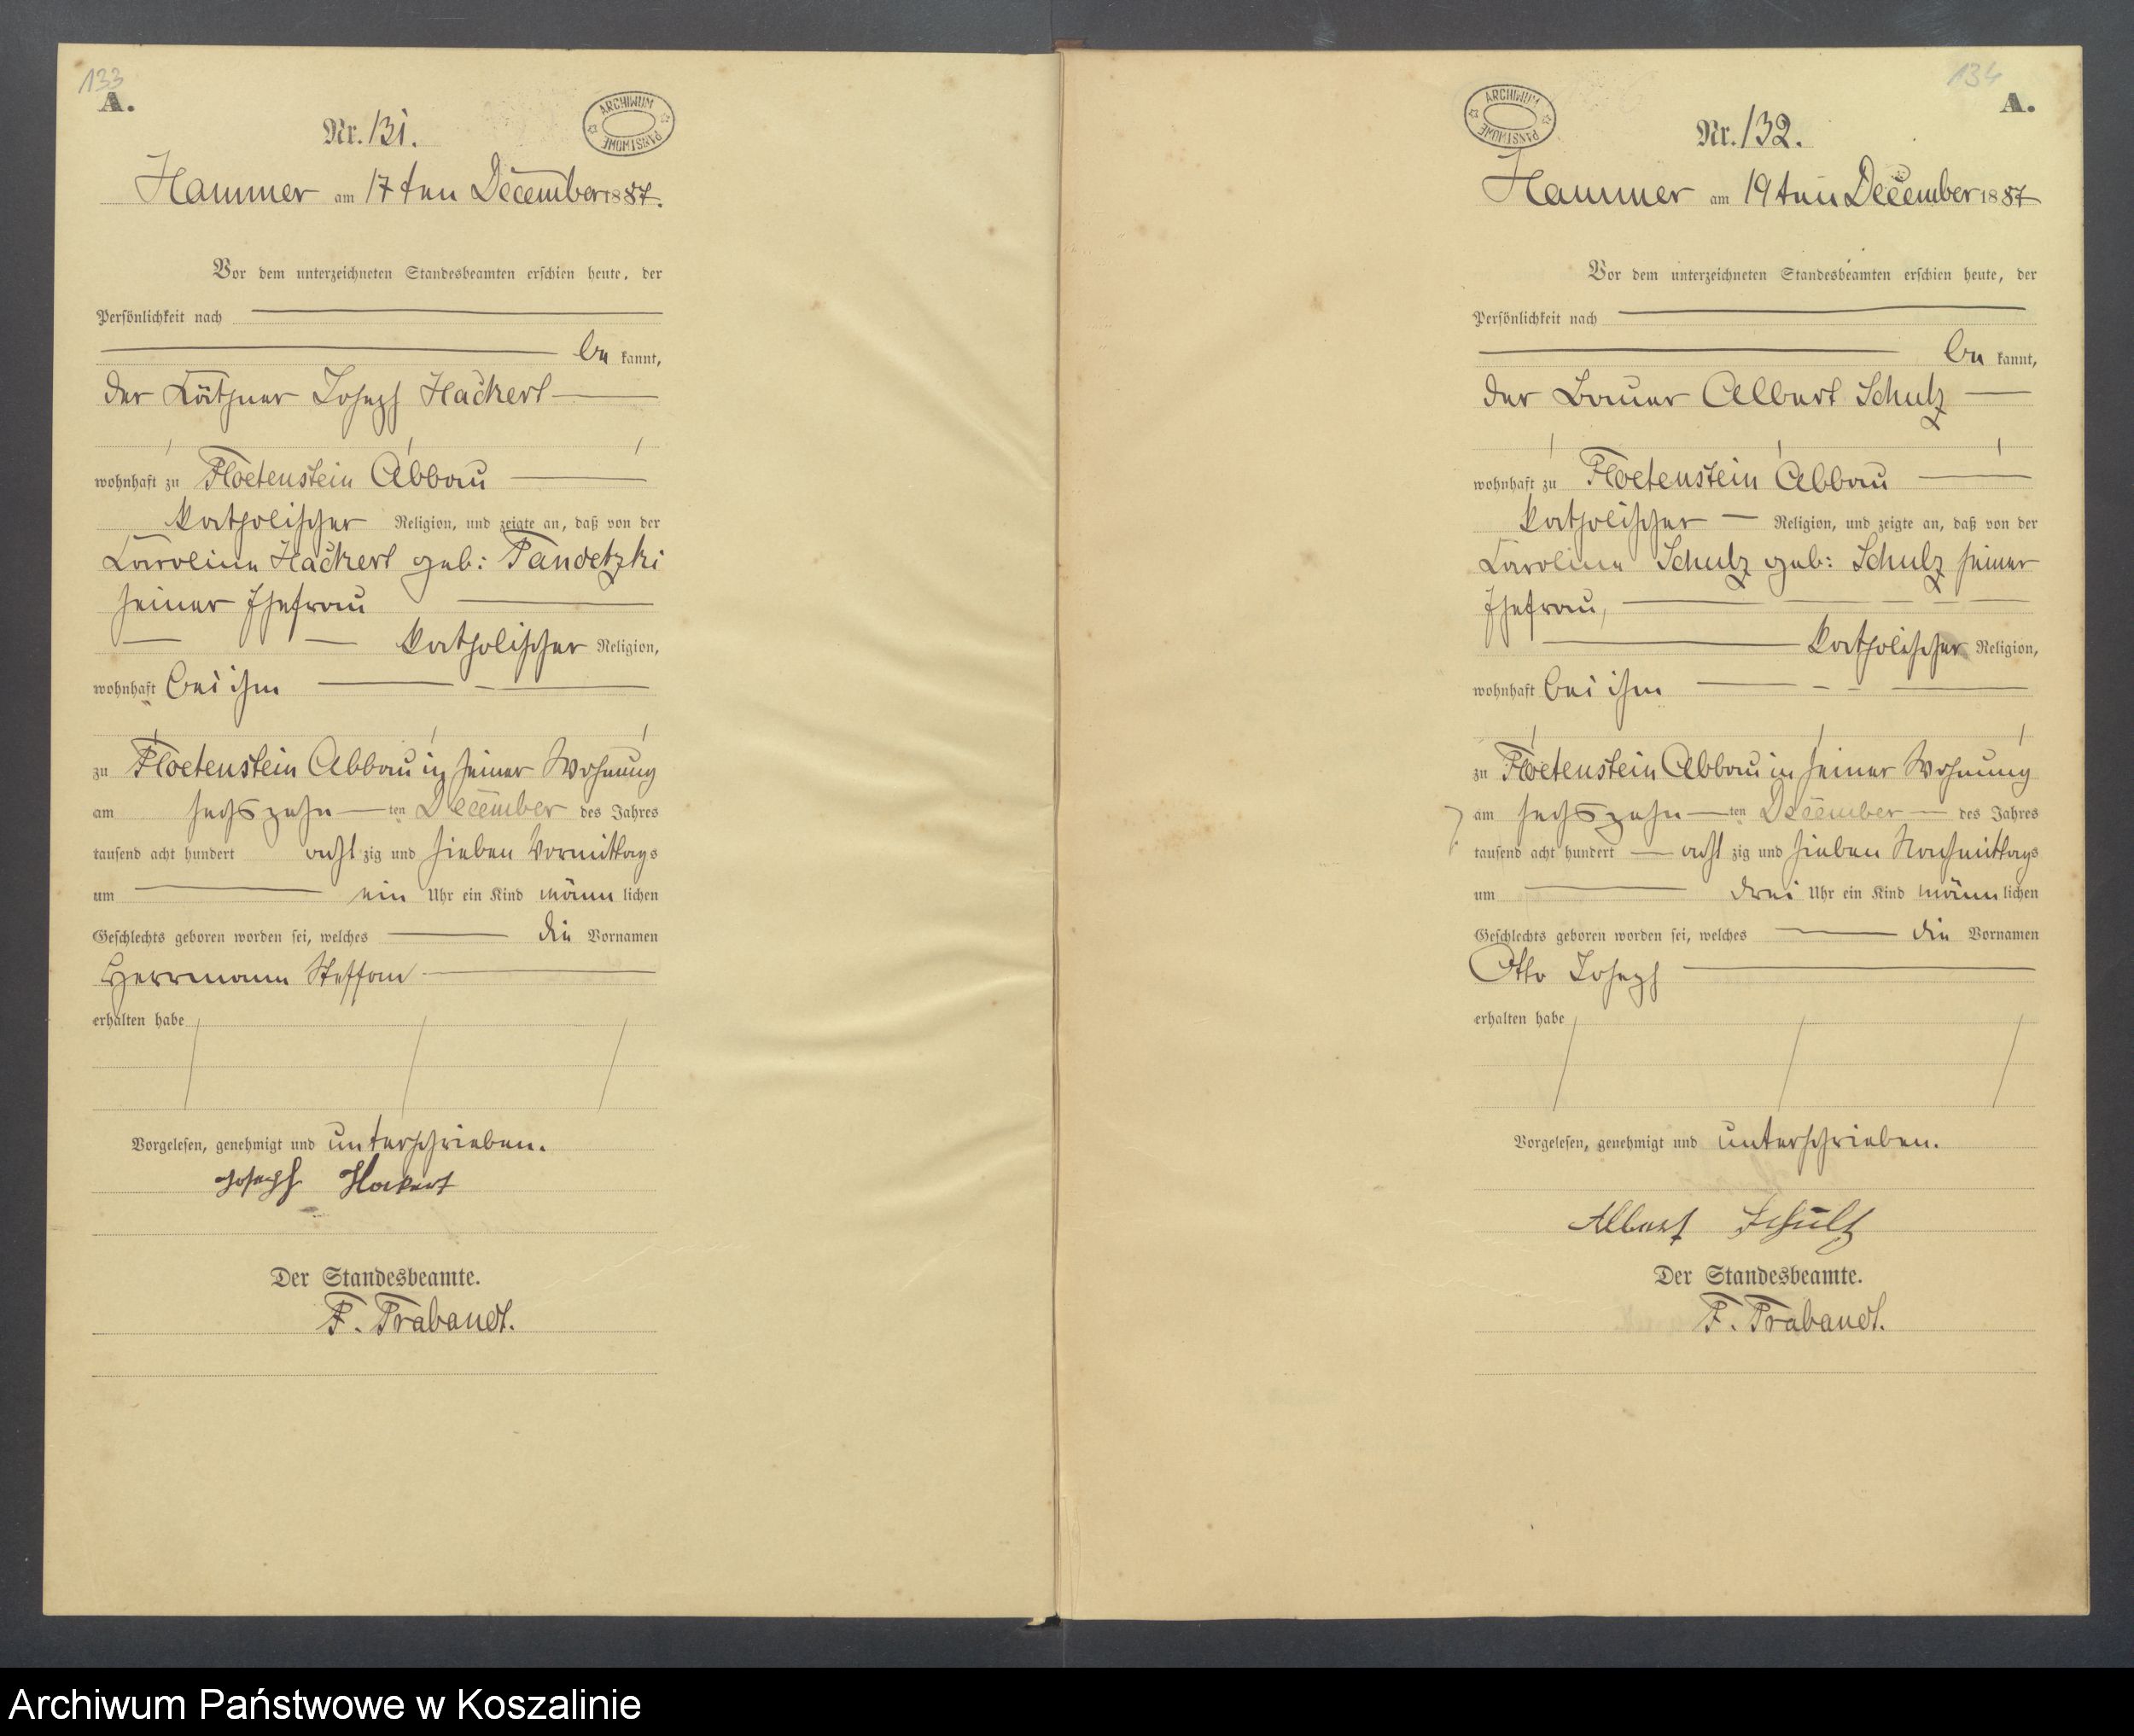 133
A.
ARCHIWUM PAŃSTWOWE
Nr. 131.
Hammer am 17ten December 1887.
Vor dem unterzeichneten Standesbeamten erschien heute, der
Persönlichkeit nach
be kannt,
der Käthner Joseph Hackert
wohnhaft zu Floetenstein Abbau
katholischer Religion, und zeigte an, daß von der
Karoline Hackert geb: Pandetzki
seiner Ehefrau
katholischer Religion,
wohnhaft bei ihm
zu Floetenstein Abbau in seiner Wohnung
am sechszehn ten December des Jahres
tausend acht hundert acht zig und sieben Vormittags
um ein Uhr ein Kind männ lichen
Geschlechts geboren worden sei, welches die Vornamen
Herrmann Steffan
erhalten habe
Vorgelesen, genehmigt und unterschrieben.
Joseph Hackert
Der Standesbeamte.
F. Trabandt.
134
A.
ARCHIWUM PAŃSTWOWE
Nr. 132.
Hammer am 19ten December 1887
Vor dem unterzeichneten Standesbeamten erschien heute, der
Persönlichkeit nach
be kannt,
der Bauer Albert Schulz
wohnhaft zu Floetenstein Abbau
katholischer Religion, und zeigte an, daß von der
Karoline Schulz geb: Schulz seiner
Ehefrau,
katholischer Religion,
wohnhaft bei ihm
zu Floetenstein Abbau in seiner Wohnung
am sechszehn ten December des Jahres
tausend acht hundert acht zig und sieben Nachmittags
um drei Uhr ein Kind männ lichen
Geschlechts geboren worden sei, welches die Vornamen
Otto Joseph
erhalten habe
Vorgelesen, genehmigt und unterschrieben.
Albert Schulz
Der Standesbeamte.
F. Trabandt.
Archiwum Państwowe w Koszalinie